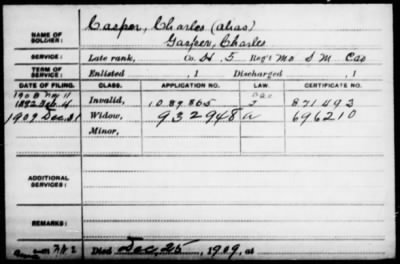 NAME OF SOLDIER: Casper, Charles (alias)
Gasper, Charles
SERVICE: Late rank, Co. H. 5 Reg't Mo S M Cav
TERM OF SERVICE: Enlisted , 1 Discharged , 1
DATE OF FILING. CLASS. APPLICATION NO. LAW. CERTIFICATE NO.
1892 Feb. 4 Invalid, 1089865 871493
1909 Dec. 31 Widow, 932948 a 696210
Minor,
ADDITIONAL SERVICES:
REMARKS:
Died Dec. 25, 1909, at